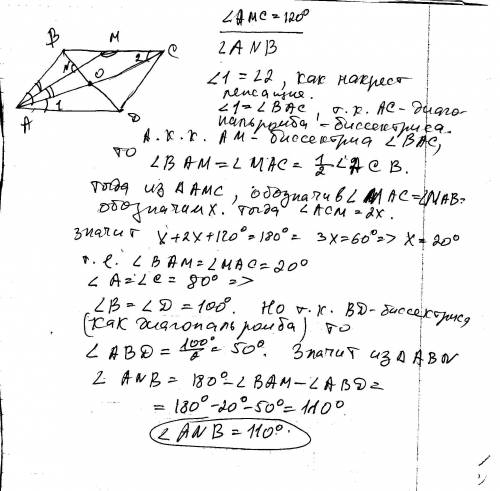 ∠AMC = 120°
∠ANB
B M C
N O 2
A 1 D
∠1 = ∠2, как накрест
лежащие.
∠1 = ∠BAC, т.к. AC - диаго-
наль ромба, - биссектриса.
А т.к. AM - биссектриса ∠BAC,
то
∠BAM = ∠MAC = 1/2 ∠ACB.
тогда из △AMC, обозначив ∠MAC = ∠NAB =
обозначим x. тогда ∠ACM = 2x.
значит x + 2x + 120° = 180° = 3x = 60° => x = 20°
т.е. ∠BAM = ∠MAC = 20°
∠A = ∠C = 80° =>
∠B = ∠D = 100°. Но т.к. BD - биссектриса
(как диагональ ромба) то
∠ABD = 100°/2 = 50°. Значит из △ABN
∠ANB = 180° - ∠BAM - ∠ABD =
= 180° - 20° - 50° = 110°
∠ANB = 110°.